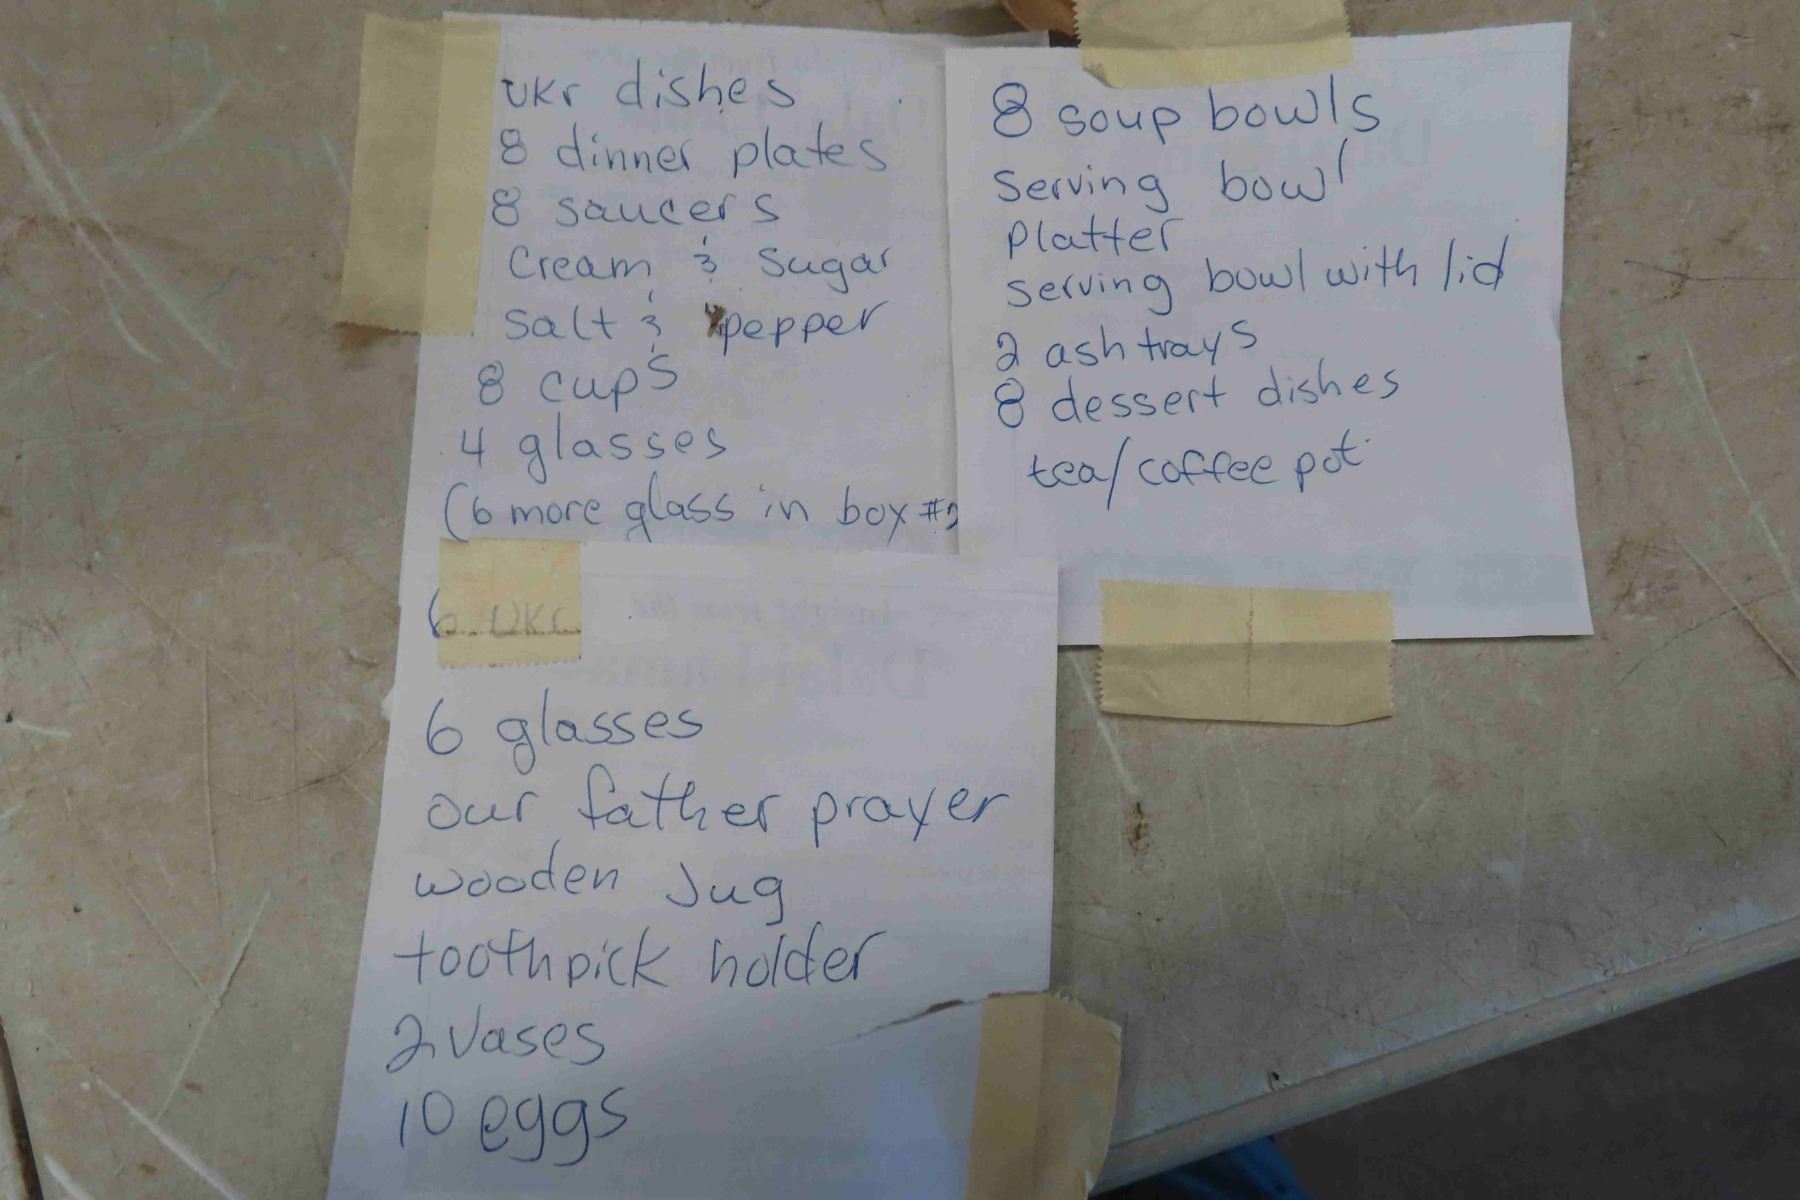 UKr dishes
8 dinner plates
8 saucers
Cream & Sugar
Salt & pepper
8 cups
4 glasses
(6 more glass in box #2
8 soup bowls
Serving bowl
Platter
serving bowl with lid
2 ash trays
8 dessert dishes
tea/coffee pot
6 UKr
6 glasses
our father prayer
wooden Jug
toothpick holder
2 Vases
10 eggs